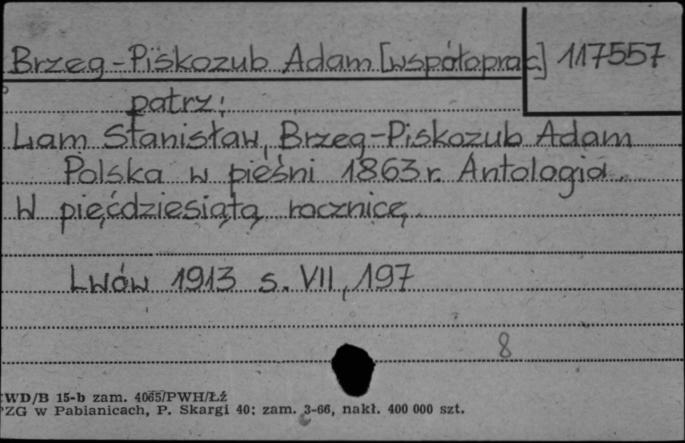 Brzeg-Piskozub Adam [współoprac] 117557
patrz:
Lam Stanisław, Brzeg-Piskozub Adam
Polska w pieśni 1863 r. Antologia.
W pięćdziesiątą rocznicę.
Lwów 1913 s. VII, 197
8
WD/B 15-b zam. 4065/PWH/Łź
PZG w Pabianicach, P. Skargi 40; zam. 3-66, nakł. 400 000 szt.